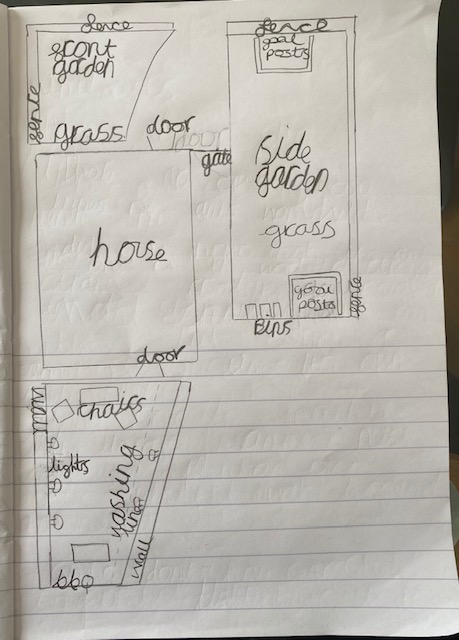 fence
front
garden
fence
grass
door
gate
fence
goal
posts
side
garden
grass
goal
posts
fence
Bins
house
door
wall
chairs
lights
washing
line
wall
bbq